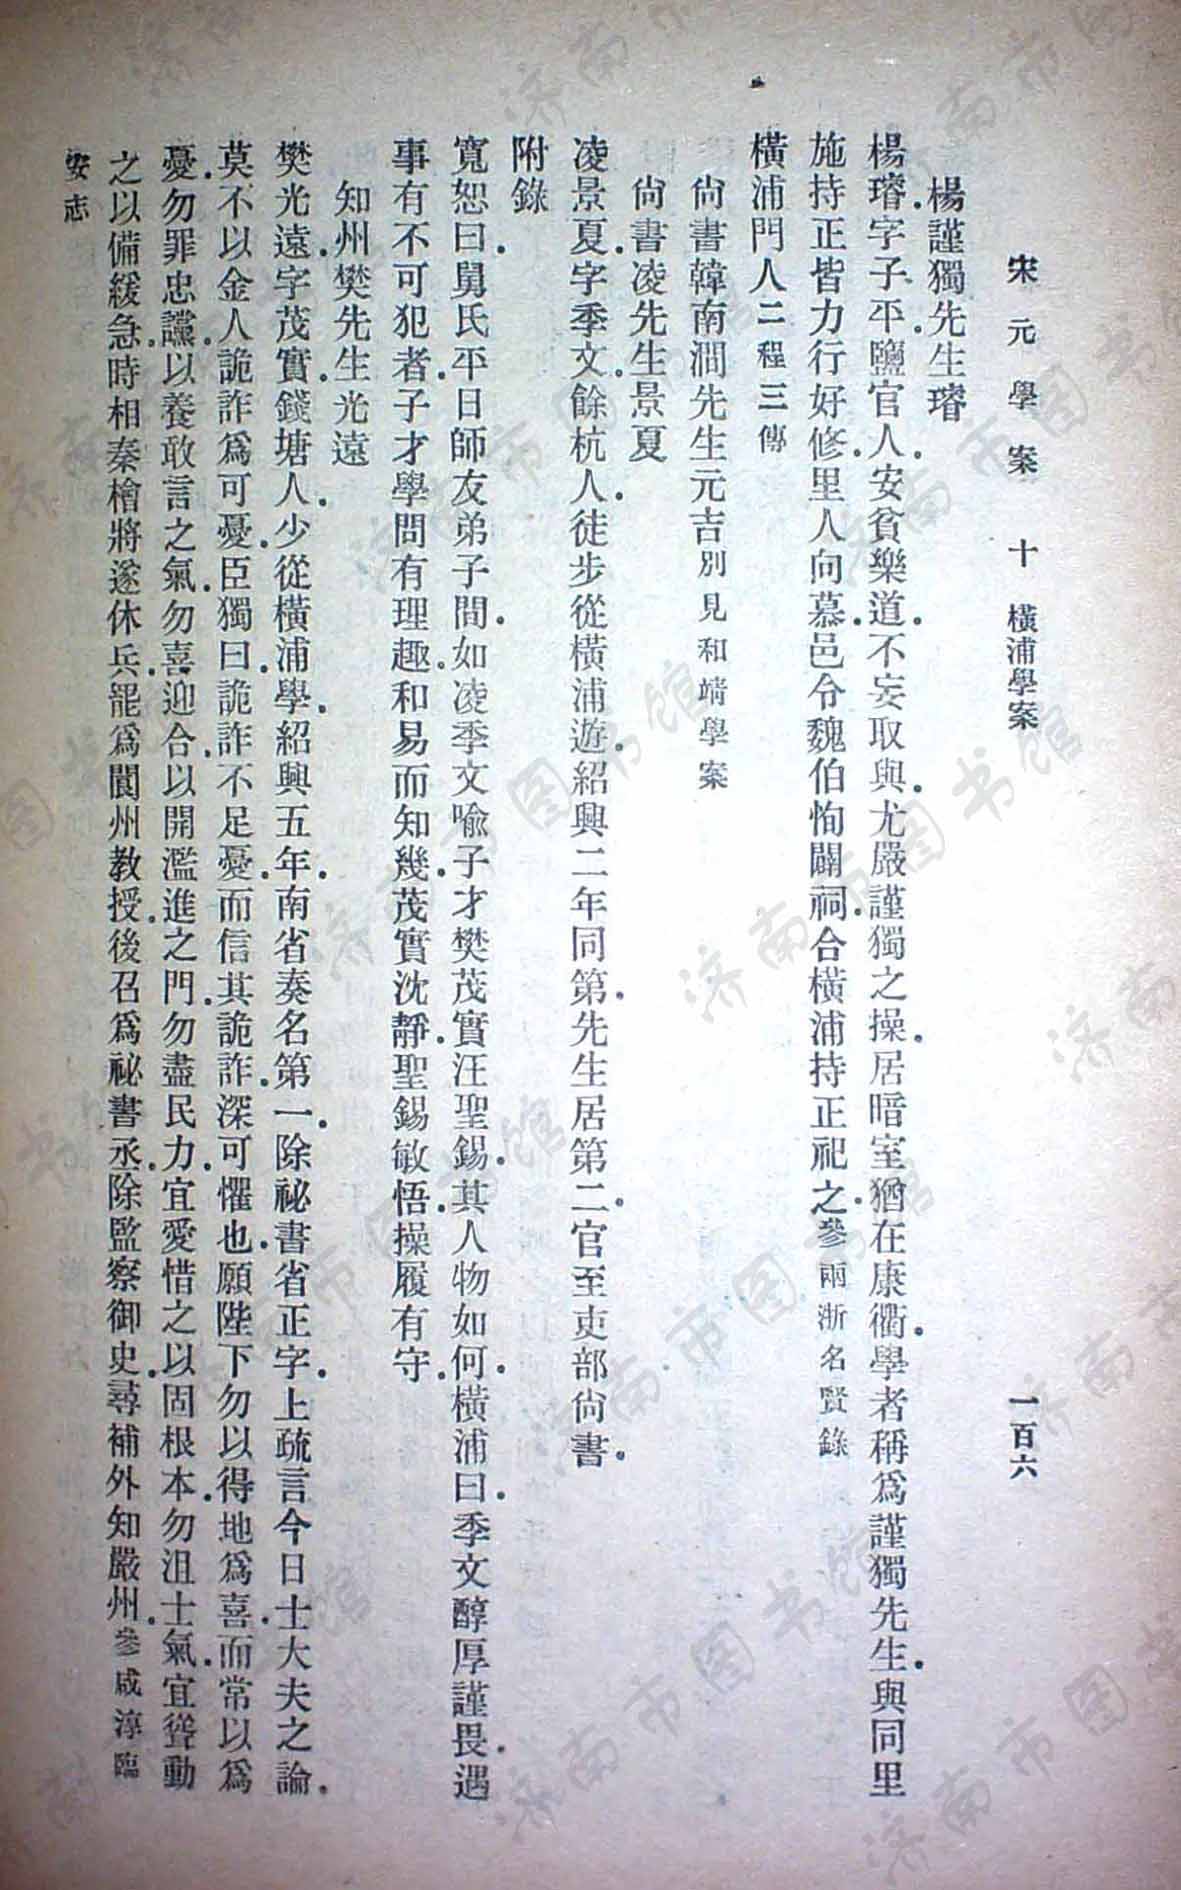 宋元學案 十 橫浦學案 一百六
楊謹獨先生璿
楊璿字子平.鹽官人.安貧樂道.不妄取與.尤嚴謹獨之操.居暗室猶在康衢.學者稱爲謹獨先生.與同里
施持正皆力行好修.里人向慕.邑令魏伯恂闢祠.合橫浦持正祀之.參兩浙名賢錄
橫浦門人二程三傳
尙書韓南澗先生元吉別見和靖學案
尙書凌先生景夏
凌景夏.字季文.餘杭人.徒步從橫浦遊.紹興二年同第.先生居第二.官至吏部尙書.
附錄
寬恕曰.舅氏平日師友弟子間.如凌季文喩子才樊茂實汪聖錫.其人物如何.橫浦曰.季文醇厚謹畏.遇
事有不可犯者.子才學問有理趣.和易而知幾.茂實沈靜.聖錫敏悟.操履有守.
知州樊先生光遠
樊光遠.字茂實.錢塘人.少從橫浦學.紹興五年.南省奏名第一.除祕書省正字.上疏言今日士大夫之論.
莫不以金人詭詐爲可憂.臣獨曰.詭詐不足憂.而信其詭詐.深可懼也.願陛下勿以得地爲喜.而常以爲
憂.勿罪忠讜.以養敢言之氣.勿喜迎合.以開濫進之門.勿盡民力.宜愛惜之以固根本.勿沮士氣.宜聳動
之以備緩急.時相秦檜將遂休兵.罷爲閬州敎授.後召爲祕書丞.除監察御史.尋補外知嚴州.參咸淳臨
安志
济南市图书馆